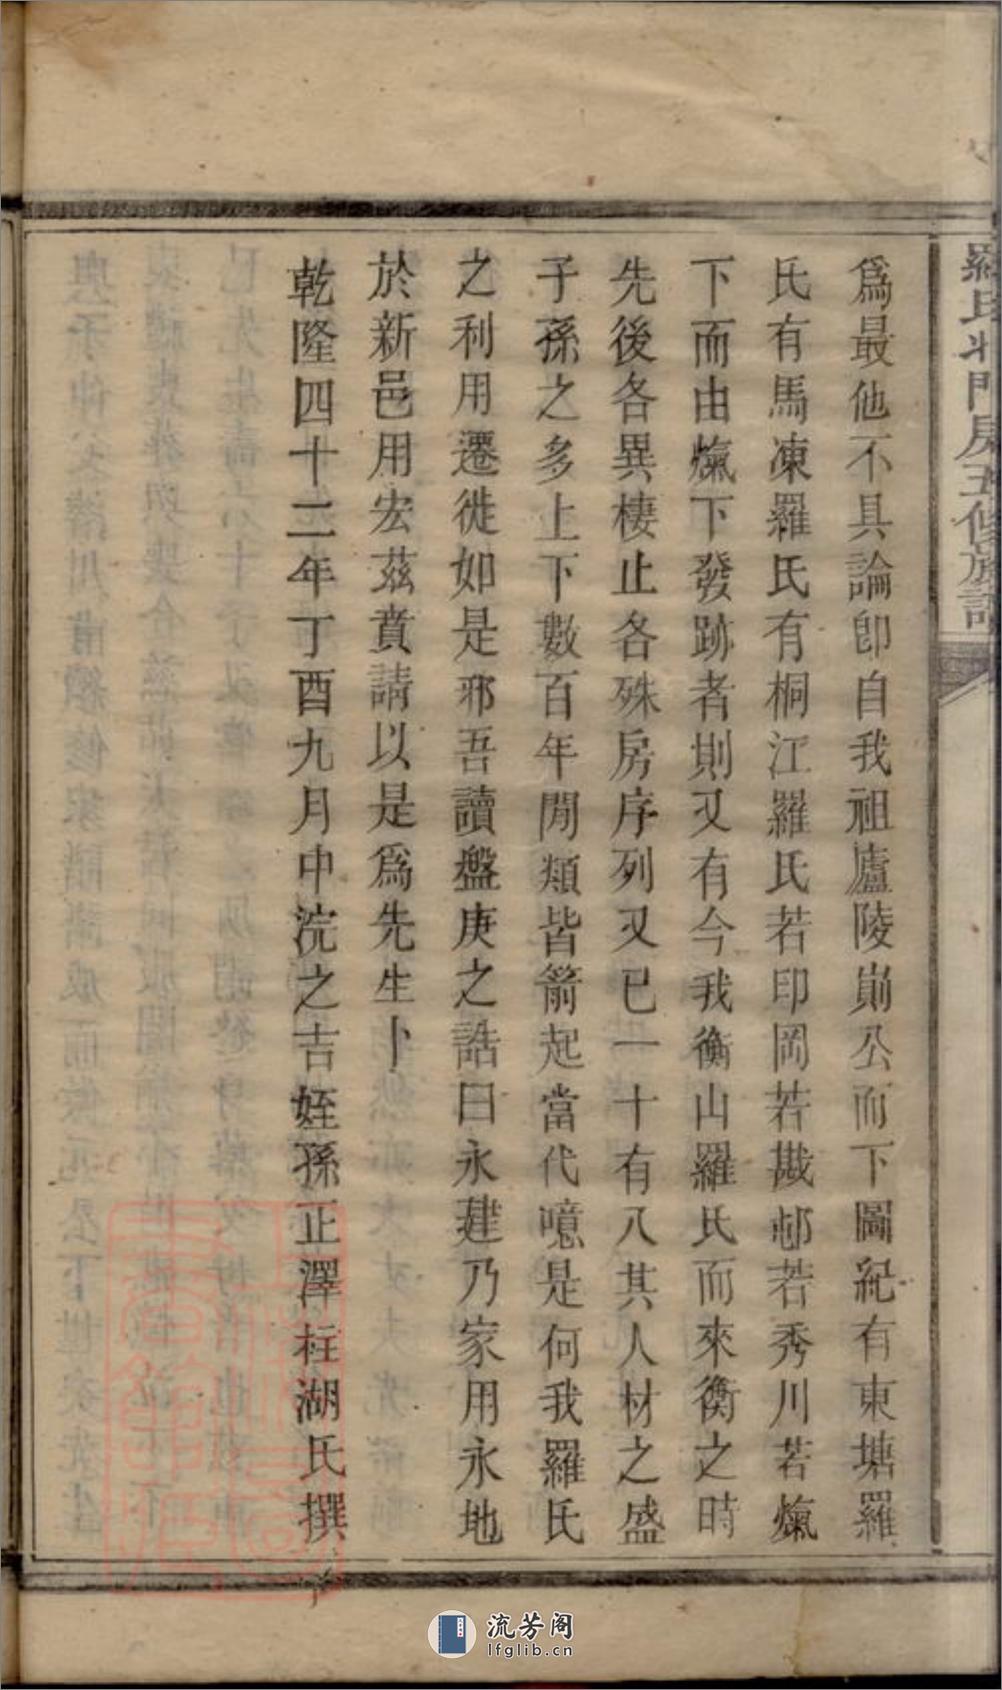 羅氏北門房五修族譜
爲最他不具論卽自我祖廬陵崱公而下圖紀有東塘羅
氏有馬凍羅氏有桐江羅氏若印岡若橶邨若秀川若爌
下而由爌下發跡者則又有今我衡山羅氏而來衡之時
先後各異棲止各殊房序列又已一十有八其人材之盛
子孫之多上下數百年閒類皆箭起當代噫是何我羅氏
之利用遷徙如是邪吾讀盤庚之誥曰永建乃家用永地
於新邑用宏茲賁請以是爲先生卜
乾隆四十二年丁酉九月中浣之吉姪孫正澤柱湖氏撰
流芳阁
lfglib.cn